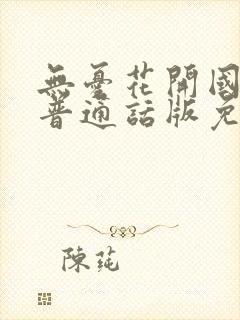 無憂花開國
普通話版免
陳莼